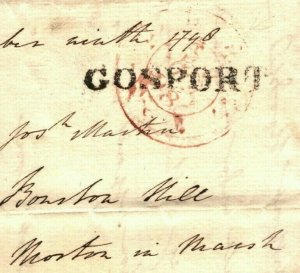 ber ninth 1798
GOSPORT
Josh Martin
Bourton Hill
Morton in Marsh